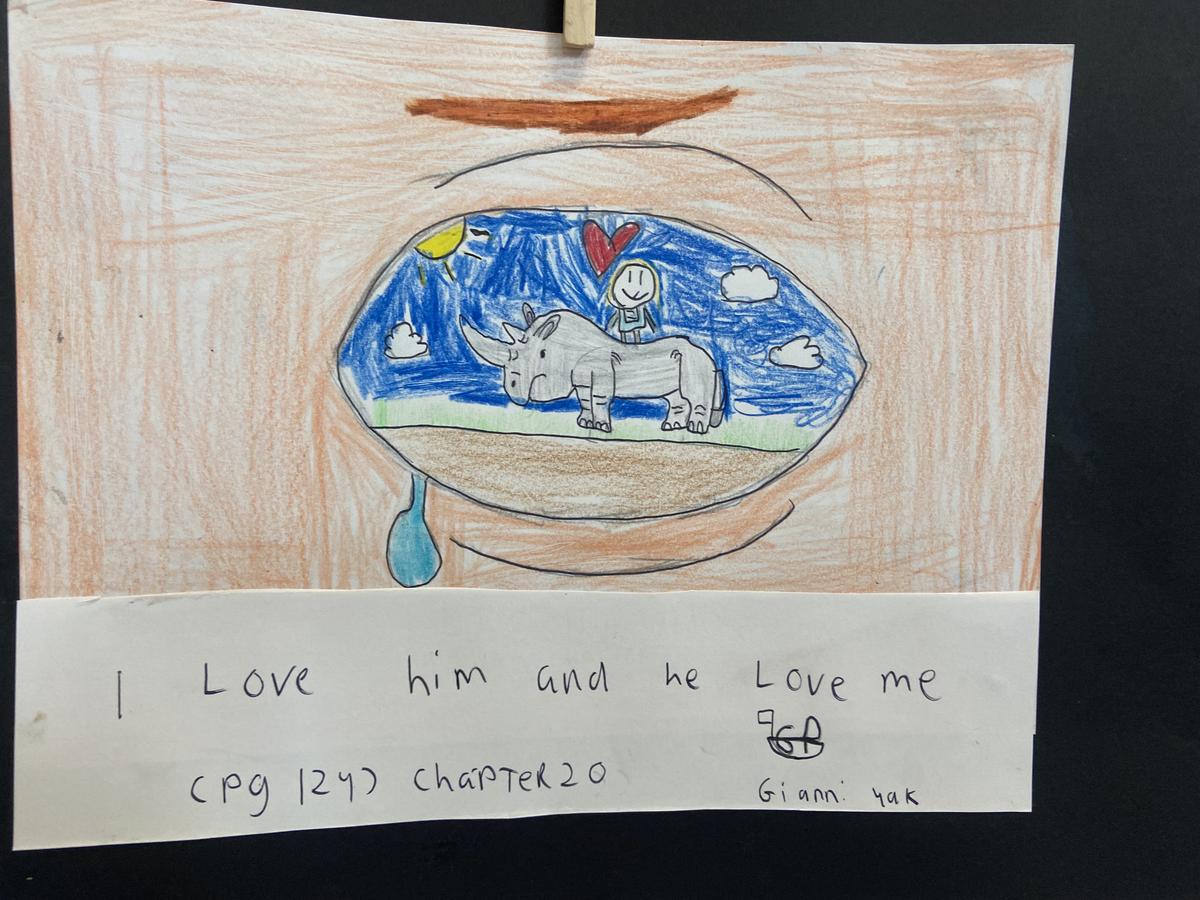 I Love him and he Love me
(pg 124) Chapter 20
Gianni yak